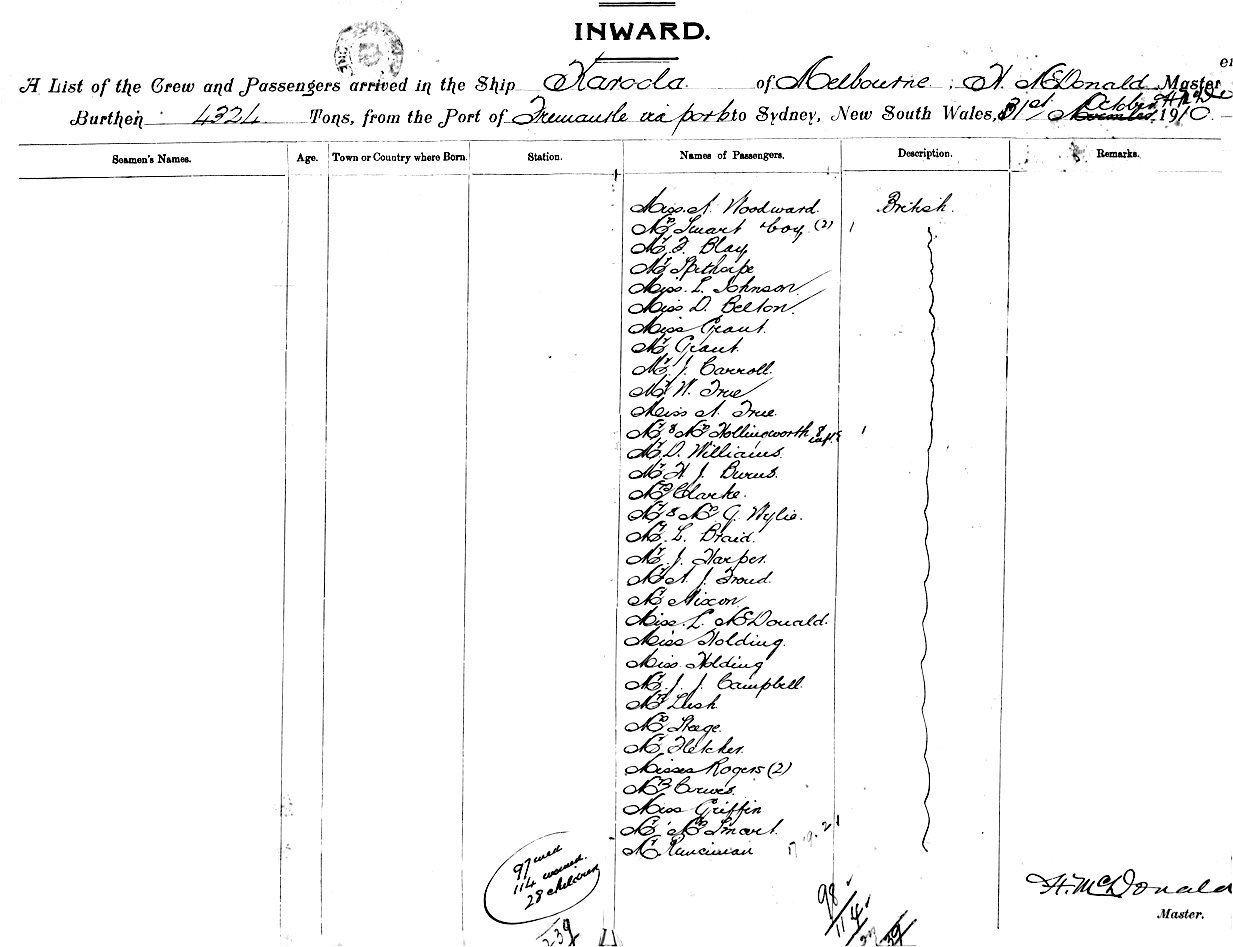 INWARD.
A List of the Crew and Passengers arrived in the Ship Karoola of Melbourne, H. McDonald Master
Burthen 4324 Tons, from the Port of Fremantle via ports to Sydney, New South Wales, 31st October 1910.
Seamen's Names. Age. Town or Country where Born. Station. Names of Passengers. Description. Remarks.
Miss A. Woodward. British.
Mrs Smart & boy (2) 1
Mr F. Blay
Mr
Miss. L. Johnson
Miss D. Belton.
Miss Grant.
Mr Grant.
Mr J. Carroll.
Mr W. True
Miss A. True.
Mr & Mrs Hollingsworth & inft 1
Mr D. Williams.
Mr H. J. Burns.
Mrs Clarke.
Mr & Mrs G. Wylie.
Mr L. Braid.
Mr J. Harper.
Mr A. J. Froud.
Mr Nixon
Miss. L. McDonald.
Miss Holding.
Miss. Holding
Mr J. J. Campbell.
Mrs Lush
Mrs Steege.
Mr Fletcher.
Misses Rogers (2)
Mrs
Miss Griffin
Mr Mrs Smart.
Mr Runciman
97 men
114 women.
28 children
239
98
114
H. McDonald
Master.